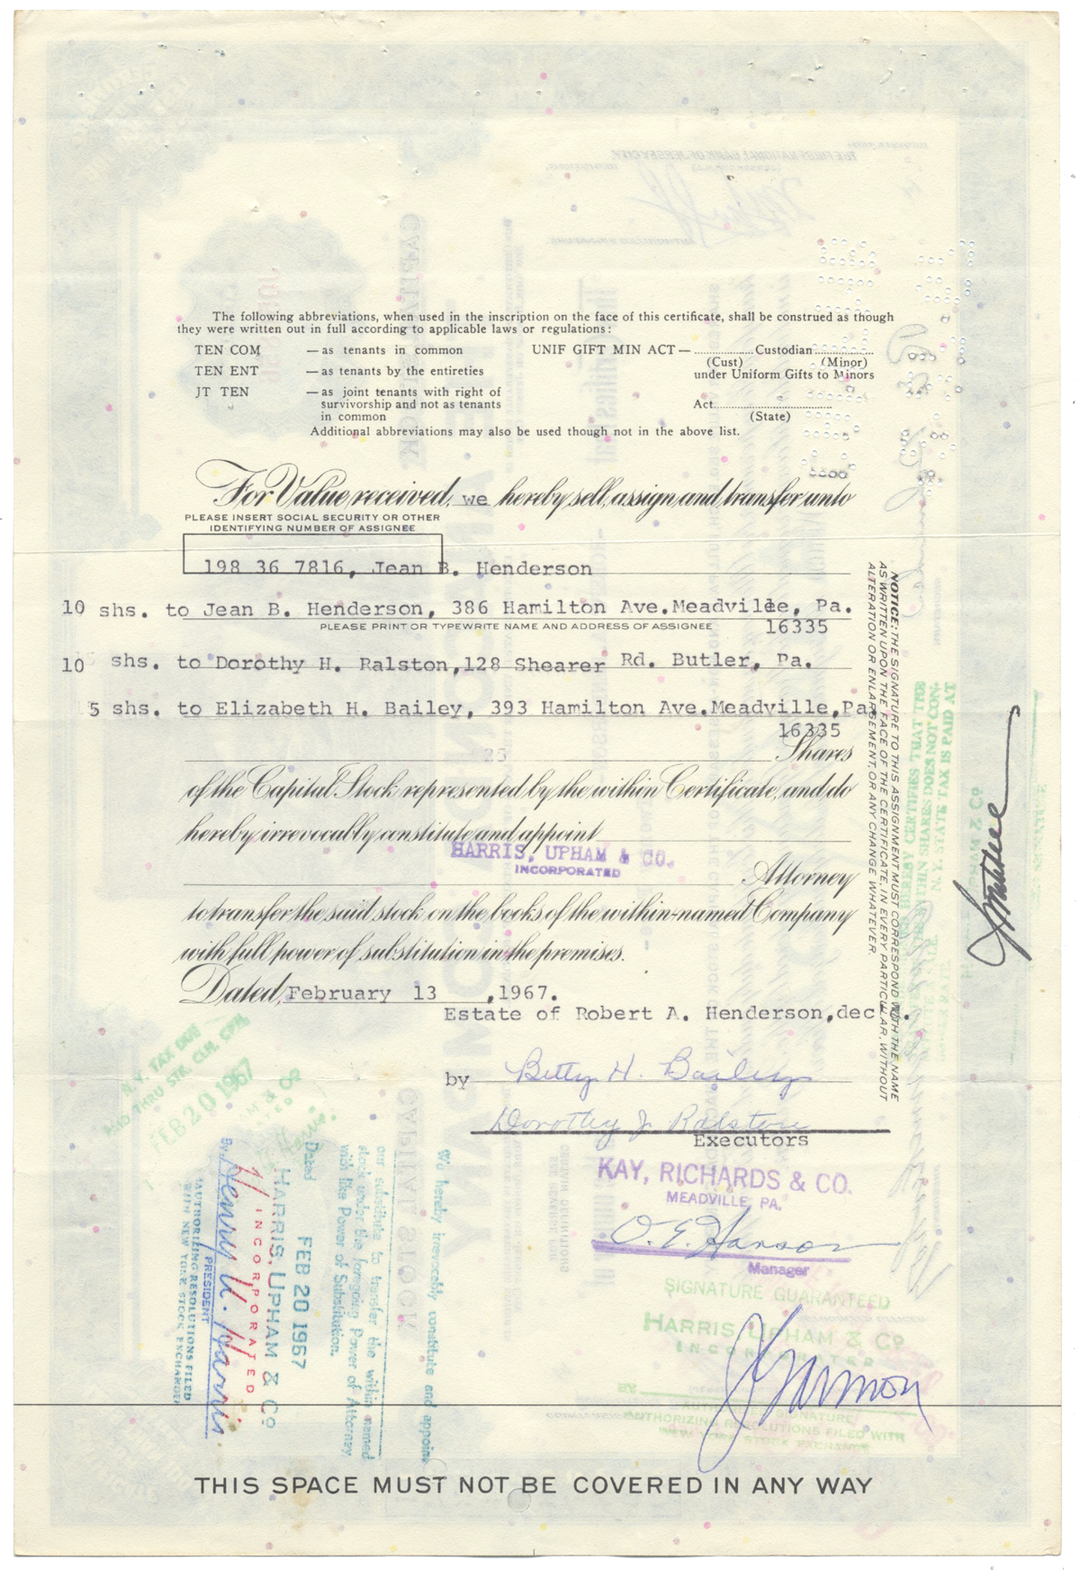 The following abbreviations, when used in the inscription on the face of this certificate, shall be construed as though
they were written out in full according to applicable laws or regulations:
TEN COM —as tenants in common UNIF GIFT MIN ACT—..............Custodian..............
(Cust) (Minor)
TEN ENT —as tenants by the entireties under Uniform Gifts to Minors
JT TEN —as joint tenants with right of
survivorship and not as tenants
in common
Act..............................
(State)
Additional abbreviations may also be used though not in the above list.
For Value received, we hereby sell, assign and transfer unto
PLEASE INSERT SOCIAL SECURITY OR OTHER
IDENTIFYING NUMBER OF ASSIGNEE
198 36 7816, Jean B. Henderson
10 shs. to Jean B. Henderson, 386 Hamilton Ave.Meadville, Pa.
PLEASE PRINT OR TYPEWRITE NAME AND ADDRESS OF ASSIGNEE 16335
10 shs. to Dorothy H. Ralston,128 Shearer Rd. Butler, Pa.
5 shs. to Elizabeth H. Bailey, 393 Hamilton Ave.Meadville,Pa.
16335
25 Shares
of the Capital Stock represented by the within Certificate, and do
hereby irrevocably constitute and appoint
HARRIS, UPHAM & CO.
INCORPORATED
Attorney
to transfer the said stock on the books of the within-named Company
with full power of substitution in the premises.
Dated, February 13 ,1967.
Estate of Robert A. Henderson,dec'd.
by Betty H. Bailey
Dorothy J. Ralston
Executors
KAY, RICHARDS & CO.
MEADVILLE PA.
O. E. Hanson
Manager
SIGNATURE GUARANTEED
HARRIS, UPHAM & Co
INCORPORATED
BY
AUTHORIZED SIGNATURE
AUTHORIZING RESOLUTIONS FILED WITH
NEW YORK STOCK EXCHANGE
NOTICE: THE SIGNATURE TO THIS ASSIGNMENT MUST CORRESPOND WITH THE NAME
AS WRITTEN UPON THE FACE OF THE CERTIFICATE, IN EVERY PARTICULAR, WITHOUT
ALTERATION OR ENLARGEMENT, OR ANY CHANGE WHATEVER.
N.Y. TAX DUE
PAID THRU STK. CLR. CRP.
FEB 20 1967
We hereby irrevocably constitute and appoint
our substitute to transfer the within named
stock under the foregoing Power of Attorney
with like Power of Substitution.
Dated FEB 20 1967
HARRIS, UPHAM & Co
INCORPORATED
By Henry U. Harris
PRESIDENT
AUTHORIZING RESOLUTIONS FILED
WITH NEW YORK STOCK EXCHANGE
THIS SPACE MUST NOT BE COVERED IN ANY WAY